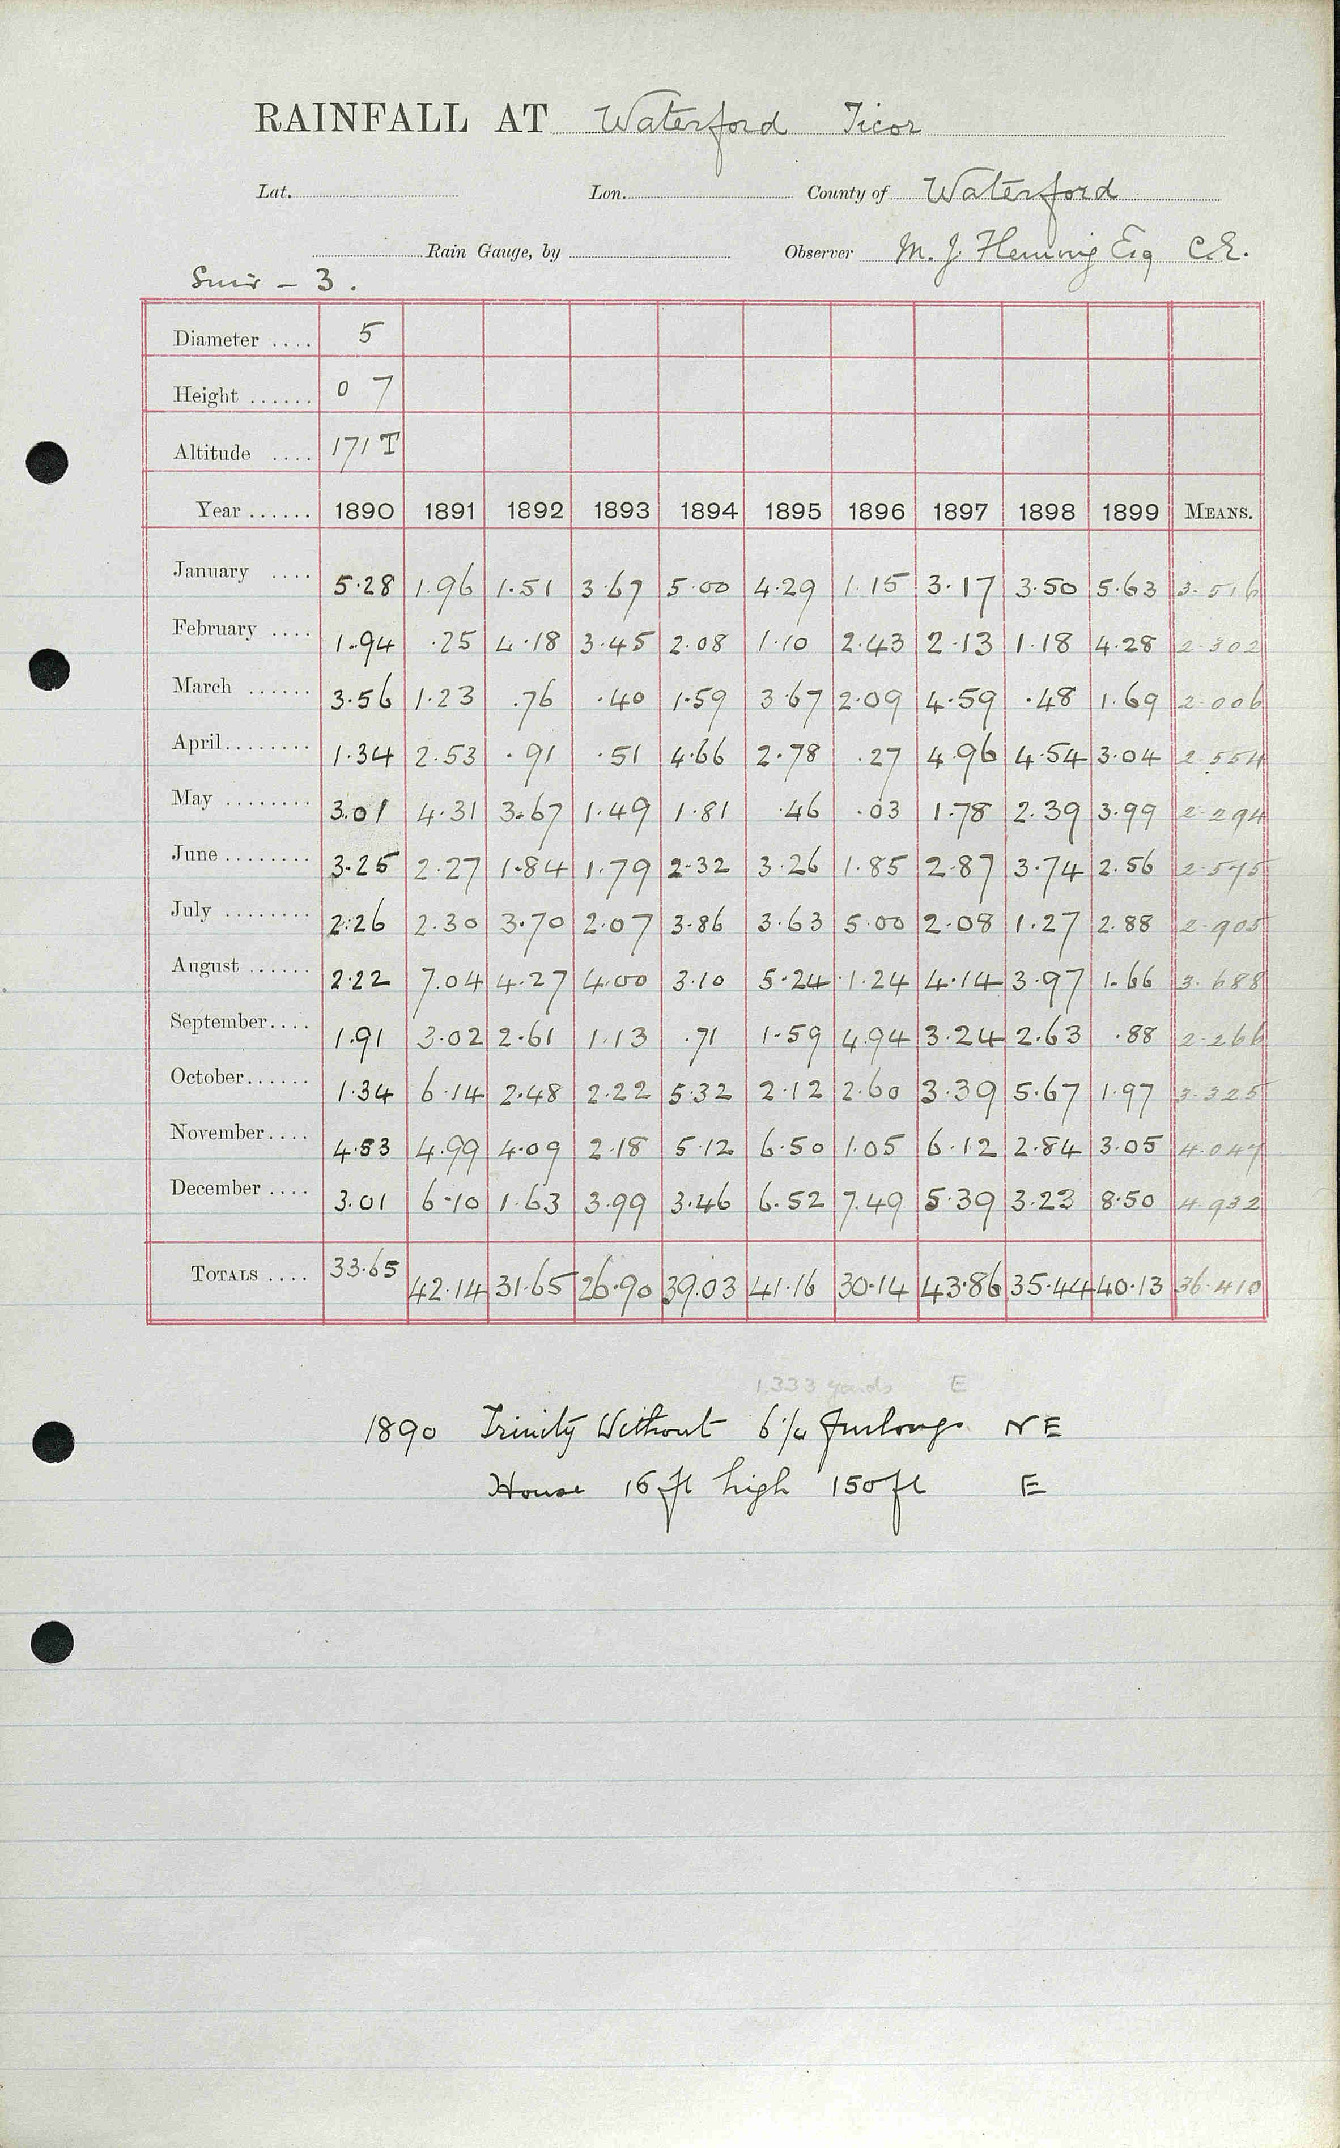 RAINFALL AT Waterford Ticor
Lat. Lon. County of Waterford
Rain Gauge, by Observer M. J. Fleming Esq C.E.
Suir - 3.
Diameter .... 5
Height ...... 0 7
Altitude .... 171 T
Year ...... 1890 1891 1892 1893 1894 1895 1896 1897 1898 1899 MEANS.
January .... 5.28 1.96 1.51 3.67 5.00 4.29 1.15 3.17 3.50 5.63 3.516
February .... 1.94 .25 4.18 3.45 2.08 1.10 2.43 2.13 1.18 4.28 2.302
March ...... 3.56 1.23 .76 .40 1.59 3.67 2.09 4.59 .48 1.69 2.006
April ........ 1.34 2.53 .91 .51 4.66 2.78 .27 4.96 4.54 3.04 2.554
May ........ 3.01 4.31 3.67 1.49 1.81 .46 .03 1.78 2.39 3.99 2.294
June ........ 3.25 2.27 1.84 1.79 2.32 3.26 1.85 2.87 3.74 2.56 2.575
July ........ 2.26 2.30 3.70 2.07 3.86 3.63 5.00 2.08 1.27 2.88 2.905
August ...... 2.22 7.04 4.27 4.00 3.10 5.24 1.24 4.14 3.97 1.66 3.688
September .... 1.91 3.02 2.61 1.13 .71 1.59 4.94 3.24 2.63 .88 2.266
October ...... 1.34 6.14 2.48 2.22 5.32 2.12 2.60 3.39 5.67 1.97 3.325
November .... 4.53 4.99 4.09 2.18 5.12 6.50 1.05 6.12 2.84 3.05 4.047
December .... 3.01 6.10 1.63 3.99 3.46 6.52 7.49 5.39 3.23 8.50 4.932
TOTALS .... 33.65 42.14 31.65 26.90 39.03 41.16 30.14 43.86 35.44 40.13 36.410
1,333 yards E
1890 Trinity Without 6¼ furlongs NE
House 16 ft high 150 ft E